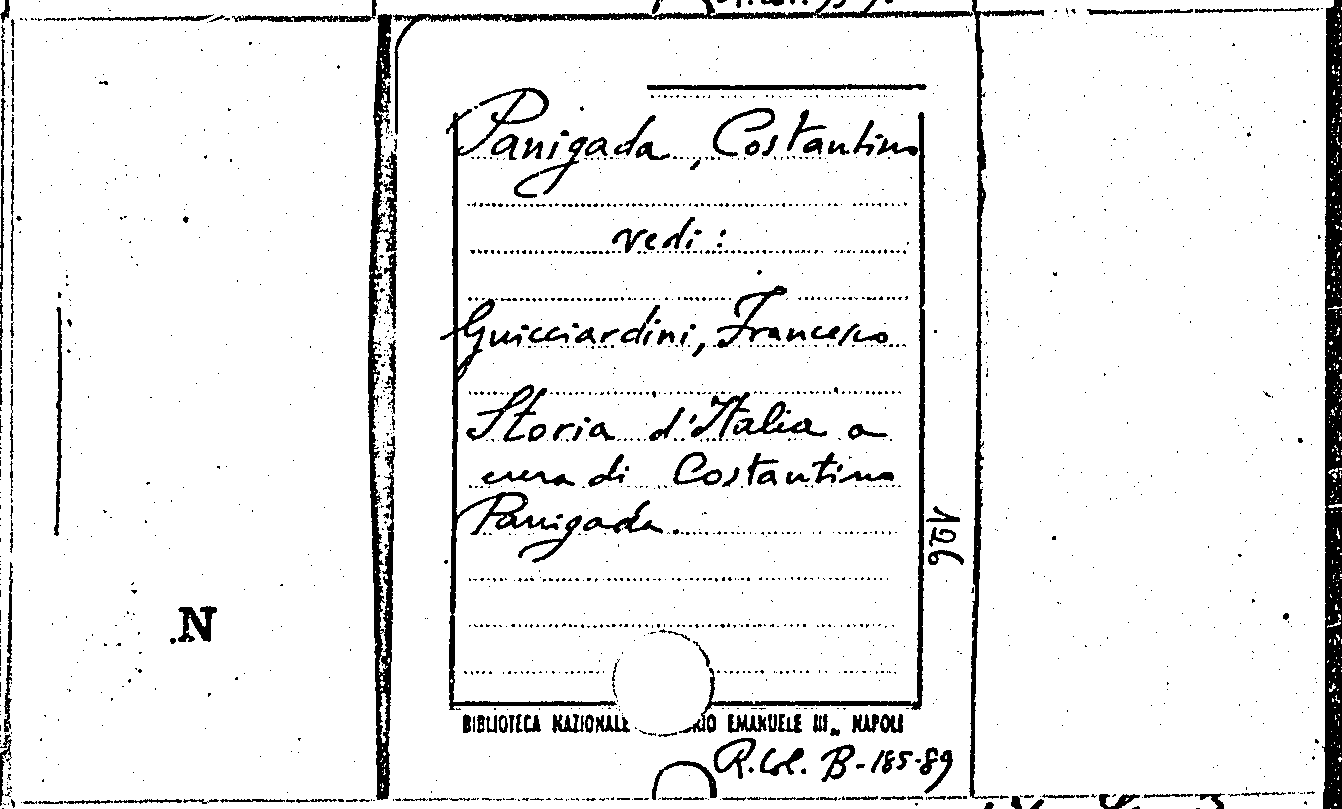 Panigada, Costantino
vedi:
Guicciardini, Francesco
Storia d'Italia a
cura di Costantino
Panigada.
196
N
BIBLIOTECA NAZIONALE EMANUELE III„ NAPOLI
R. Col. B-185-89